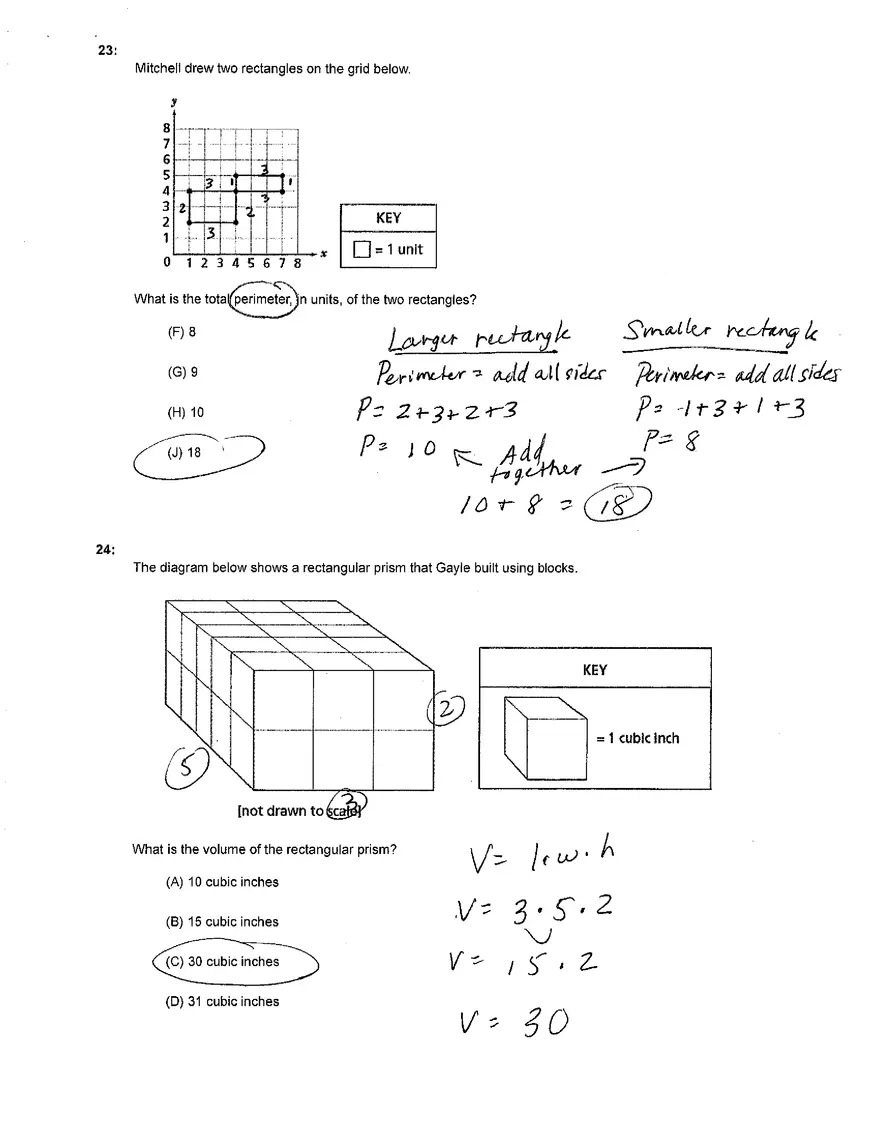 23:
Mitchell drew two rectangles on the grid below.
y
8
7
6
5
4
3
2
1
0 1 2 3 4 5 6 7 8 x
3
3 1 1
3
2 2
3
KEY
= 1 unit
What is the total perimeter, in units, of the two rectangles?
(F) 8
(G) 9
(H) 10
(J) 18
Larger rectangle
Perimeter = add all sides
P = 2+3+2+3
P = 10
Smaller rectangle
Perimeter = add all sides
P = 1+3+1+3
P = 8
Add
together
10 + 8 = 18
24:
The diagram below shows a rectangular prism that Gayle built using blocks.
2
5
3
[not drawn to scale]
KEY
= 1 cubic inch
What is the volume of the rectangular prism?
(A) 10 cubic inches
(B) 15 cubic inches
(C) 30 cubic inches
(D) 31 cubic inches
V = l · w · h
V = 3 · 5 · 2
V = 15 · 2
V = 30